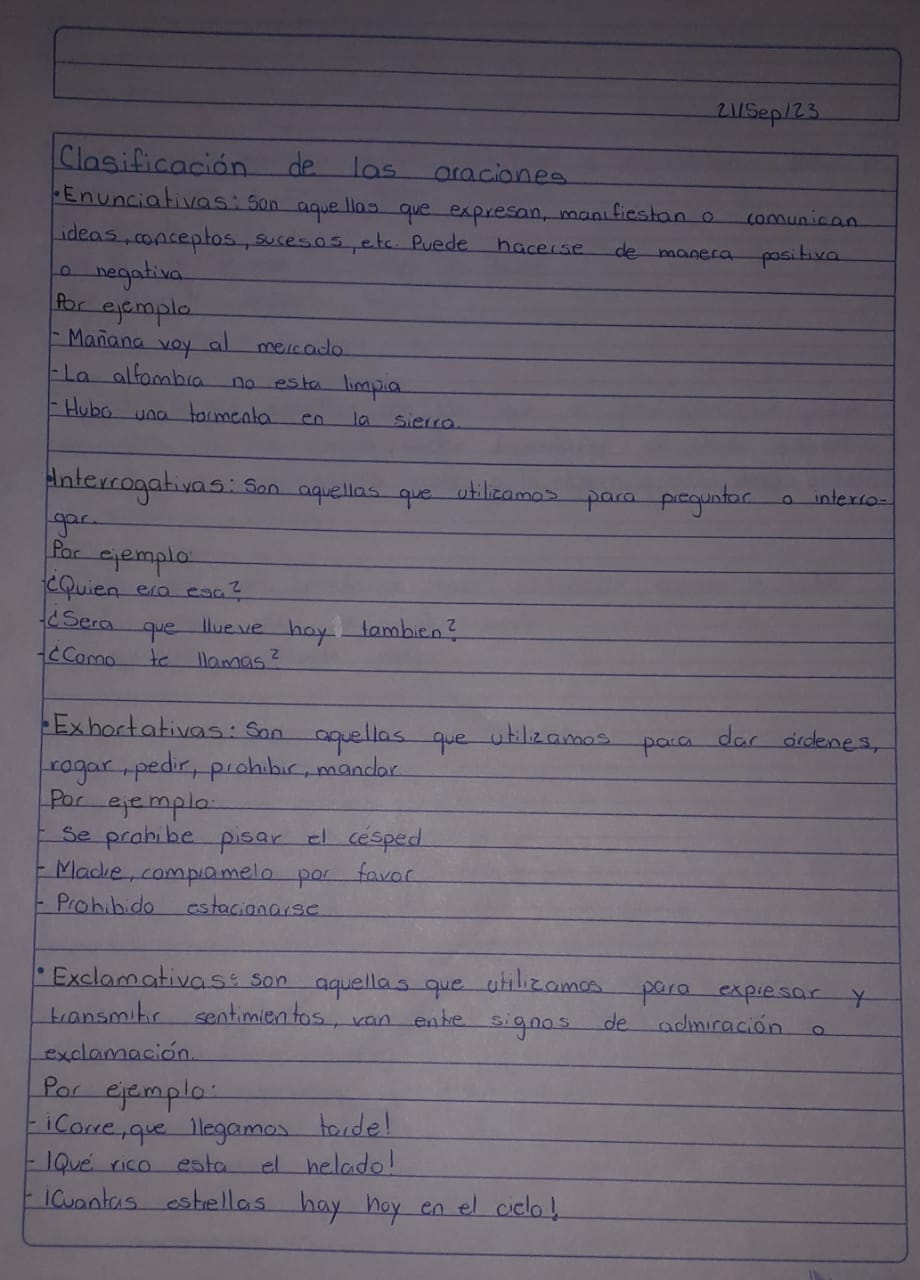 21/Sep/23
Clasificación de las oraciones
•Enunciativas: Son aquellas que expresan, manifiestan o comunican
ideas, conceptos, sucesos, etc. Puede hacerse de manera positiva
o negativa
Por ejemplo
- Mañana voy al mercado
- La alfombra no esta limpia
- Hubo una tormenta en la sierra.
•Interrogativas: Son aquellas que utilizamos para preguntar o interro-
gar.
Por ejemplo:
-¿Quien era esa?
-¿Sera que llueve hoy tambien?
-¿Como te llamas?
•Exhortativas: Son aquellas que utilizamos para dar órdenes,
rogar, pedir, prohibir, mandar
Por ejemplo:
- Se prohibe pisar el césped
- Madre, compramelo por favor
- Prohibido estacionarse
• Exclamativas: son aquellas que utilizamos para expresar y
transmitir sentimientos, van entre signos de admiración o
exclamación.
Por ejemplo:
- ¡Corre, que llegamos tarde!
- ¡Qué rico esta el helado!
- ¡Cuantas estrellas hay hoy en el cielo!